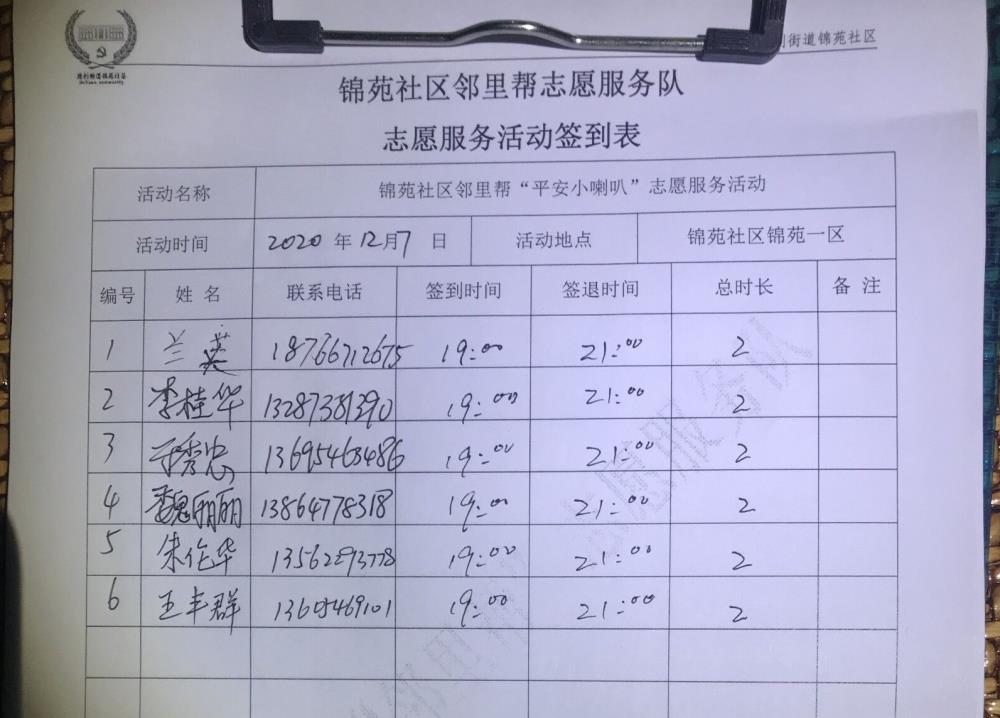 胜利街道锦苑社区
JinYuan community
街道锦苑社区
锦苑社区邻里帮志愿服务队
志愿服务活动签到表
活动名称 锦苑社区邻里帮“平安小喇叭”志愿服务活动
活动时间 2020 年 12月7 日 活动地点 锦苑社区锦苑一区
编号 姓 名 联系电话 签到时间 签退时间 总时长 备 注
1 兰英 18766712675 19:00 21:00 2
2 李桂华 13287381390 19:00 21:00 2
3 于秀忠 13695463486 19:00 21:00 2
4 魏丽丽 13864778318 19:00 21:00 2
5 朱作华 13562293778 19:00 21:00 2
6 王丰群 19:00 21:00 2
邻里帮志愿服务队